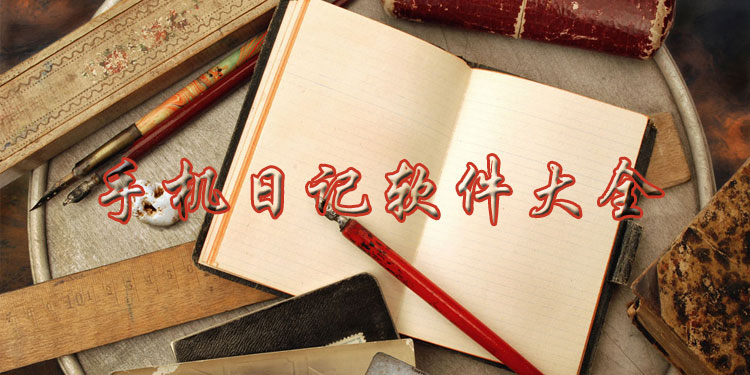 手机日记软件大全